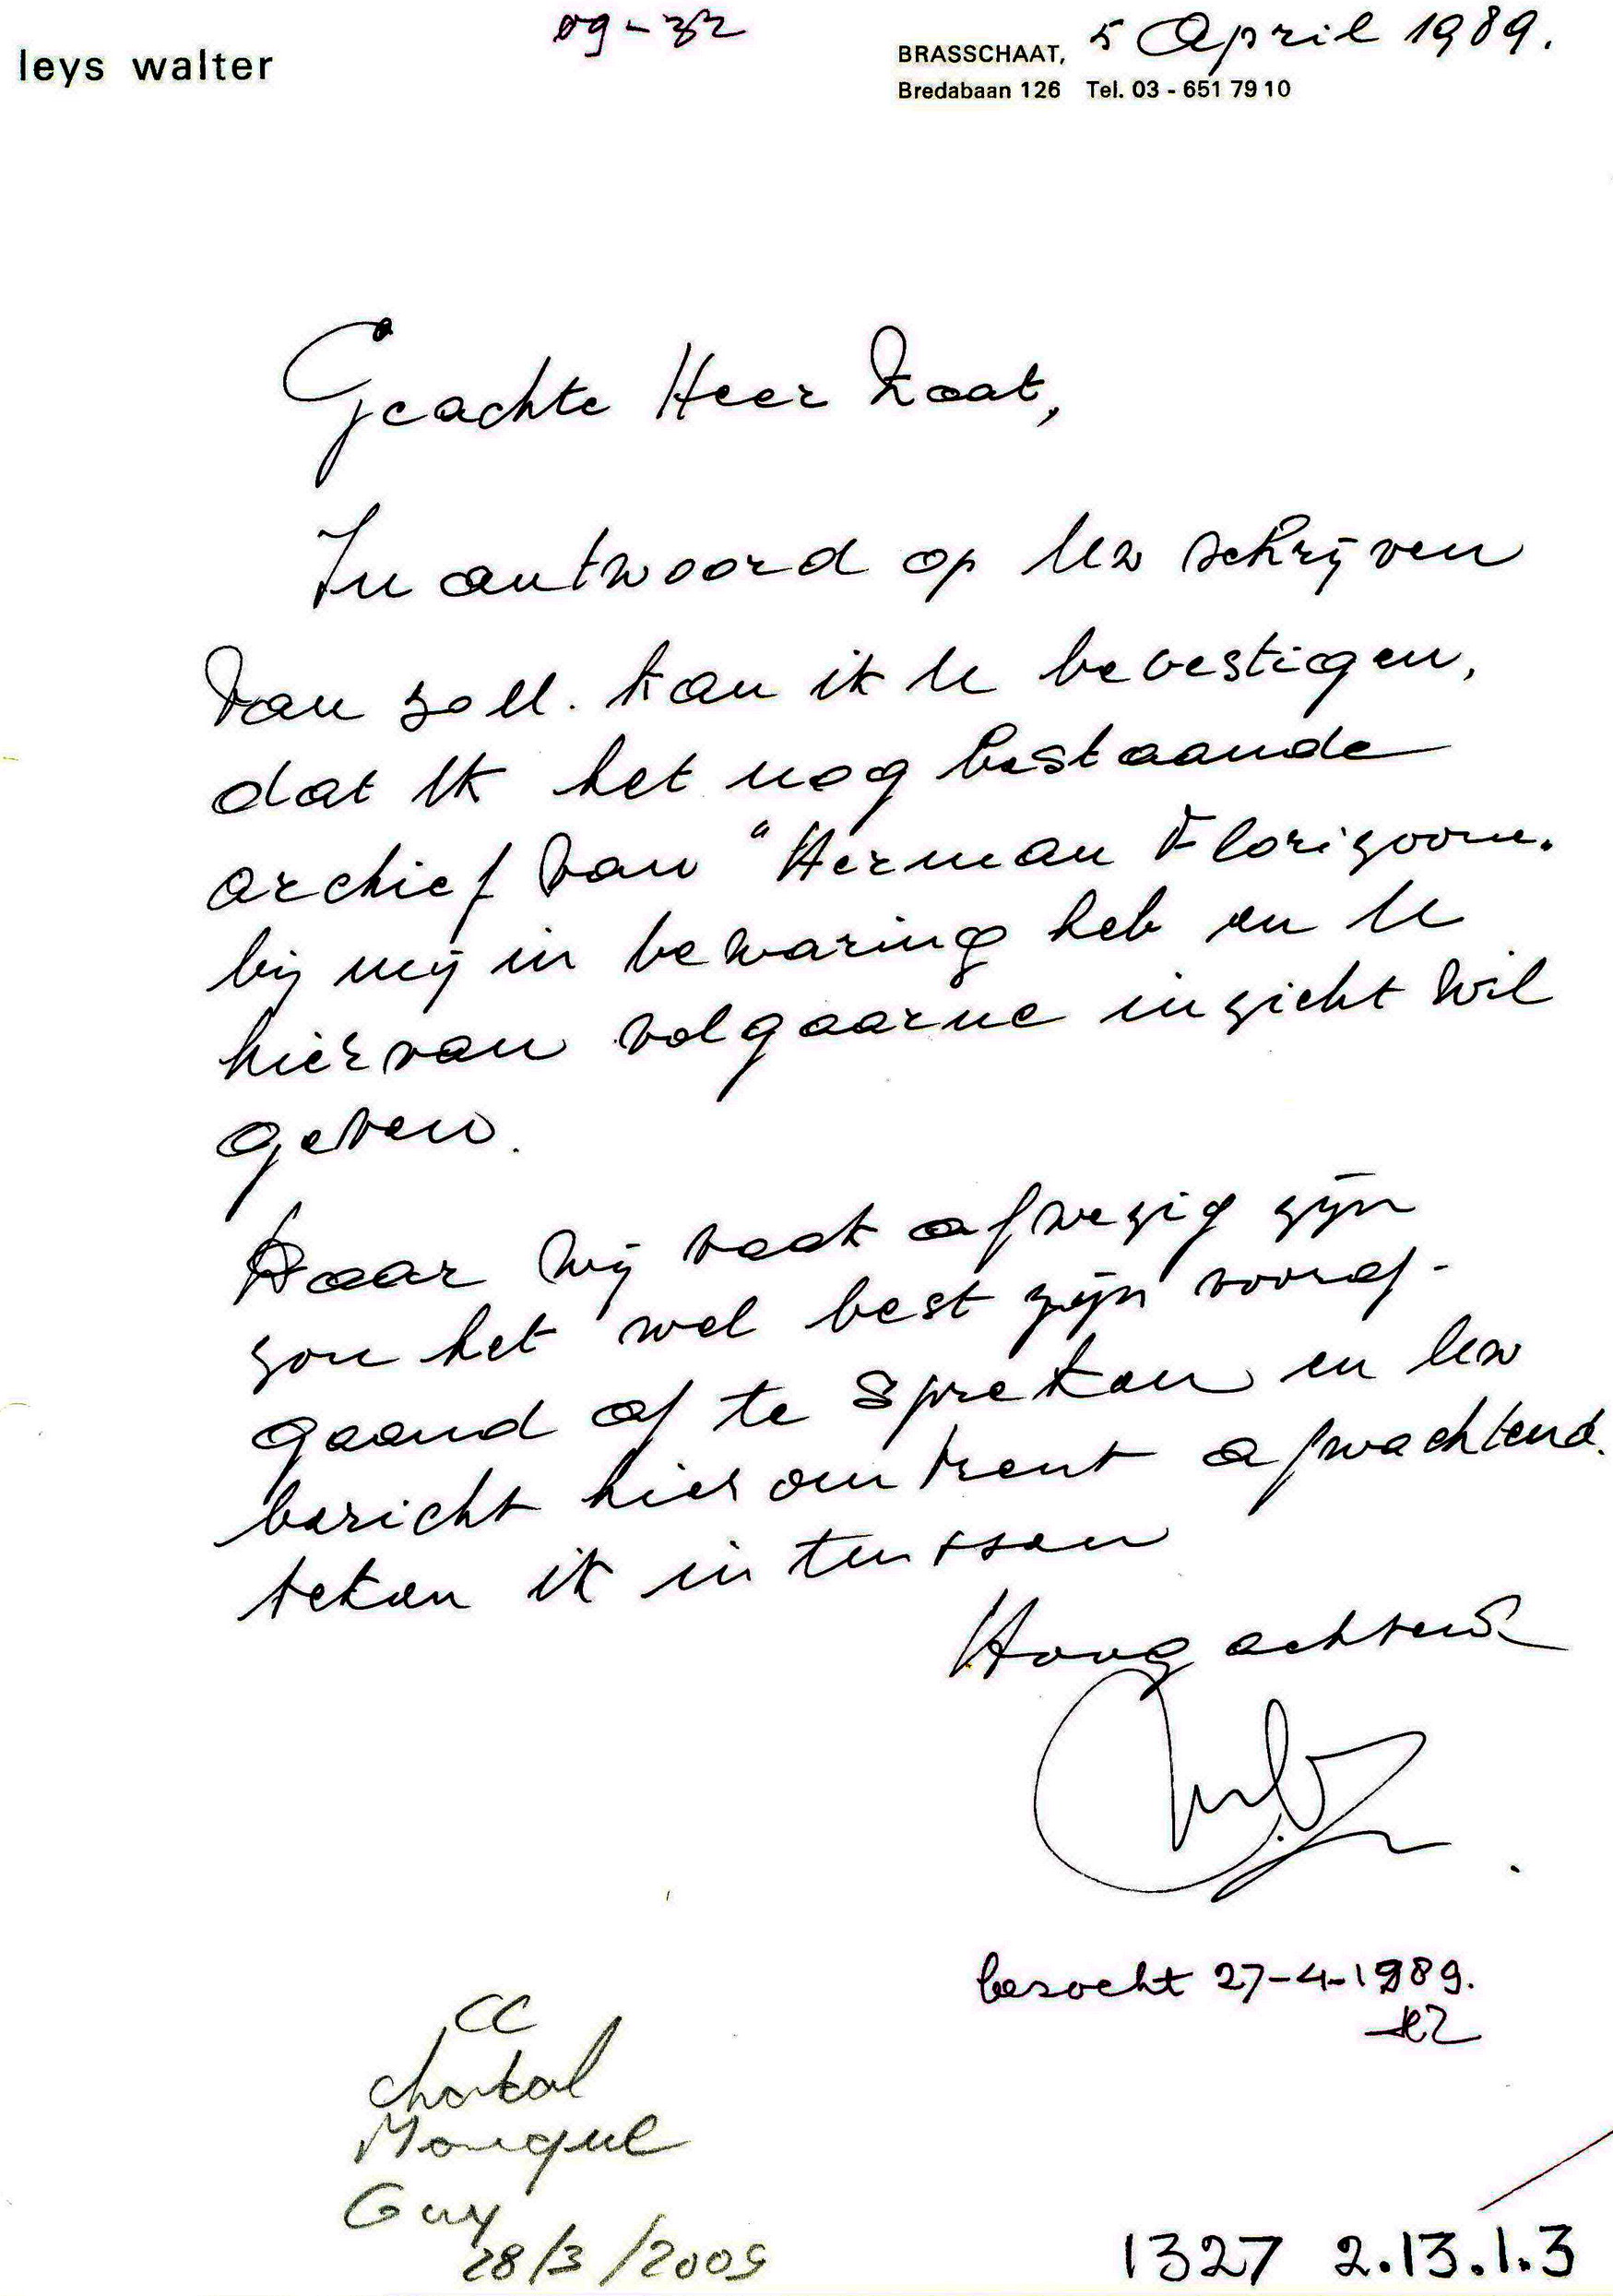 09-32
leys walter
BRASSCHAAT, 5 April 1989.
Bredabaan 126 Tel. 03 - 651 79 10
Geachte Heer Zaat,
In antwoord op Uw schrijven
van 30 ll. kan ik U bevestigen,
dat Ik het nog bestaande
archief van "Herman Florizoone.
bij mij in bewaring heb en U
hiervan volgaarne inzicht wil
geven.
Daar wij vaak afwezig zijn
zou het wel best zijn vooraf-
gaand af te spreken en Uw
bericht hieromtrent afwachtend.
teken ik intussen
Hoogachtend
bezocht 27-4-1989.
CC
Chantal
Monique
Guy
28/3/2009
1327 2.13.1.3